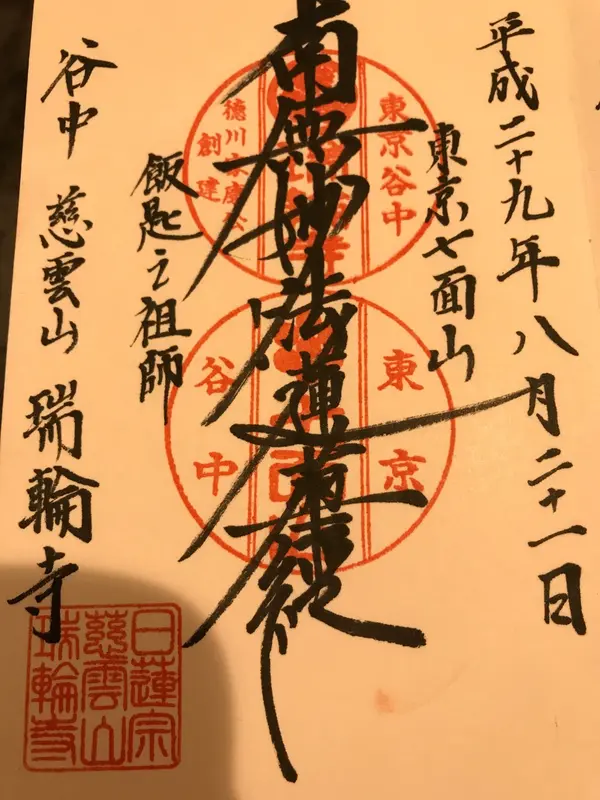 平成二十九年八月二十一日
東京七面山
南無妙法蓮華経
飯匙之祖師
谷中 慈雲山 瑞輪寺
東京谷中
徳川家康公
創建
東京
谷中
日蓮宗
慈雲山
瑞輪寺